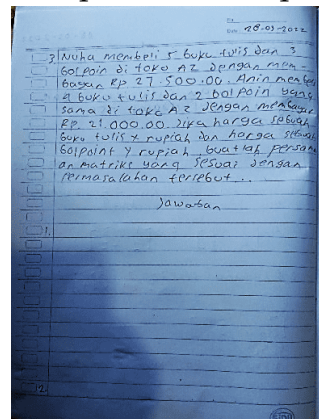 28-03-2022
3 Nuha membeli 5 buku tulis dan 3
bolpoin di toko AZ dengan mem-
bayar Rp 27.500.00. Anin membeli
4 buku tulis dan 2 bolpoin yang
sama di toko AZ dengan membayar
Rp. 21.000.00. Jika harga sebuah
buku tulis x rupiah dan harga sebuah
bolpoint y rupiah, buatlah persama
an matriks yang sesuai dengan
permasalahan tersebut...
Jawaban
1.
12.